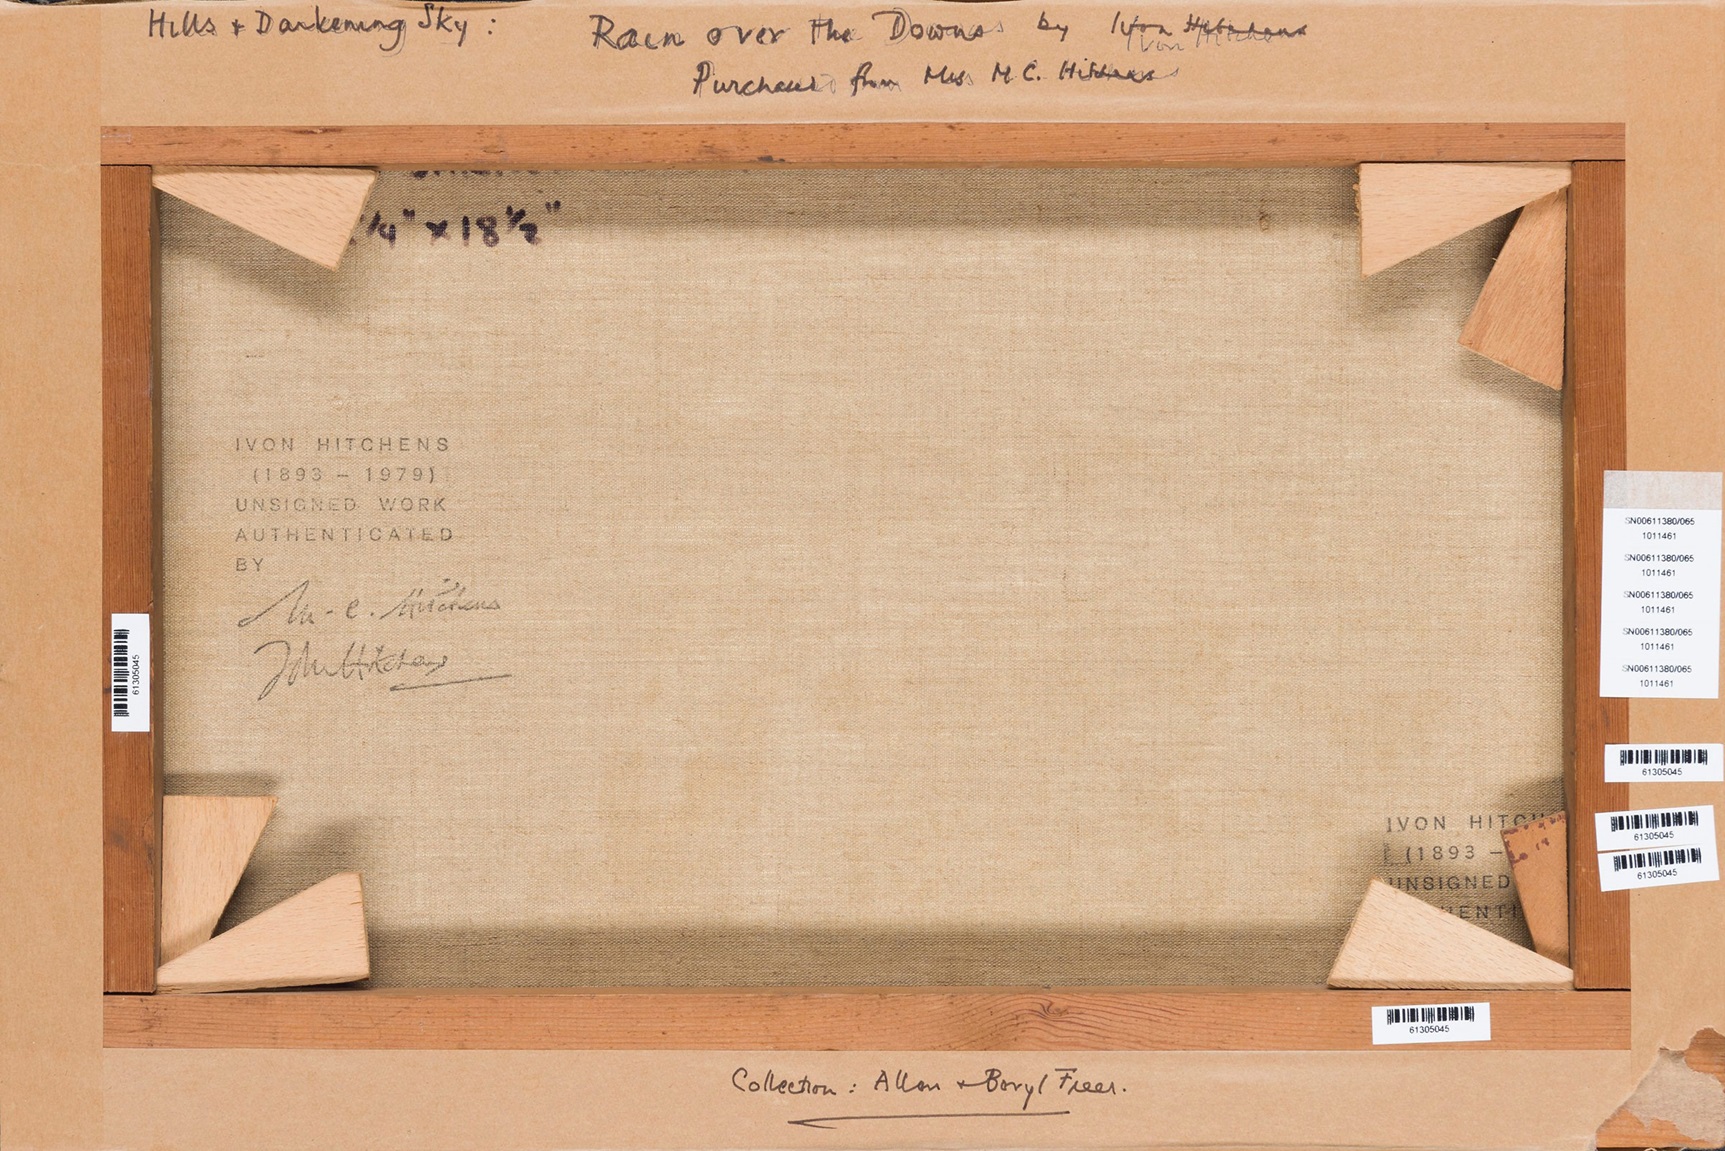 Hills + Darkening Sky : Rain over the Downs by Ivon Hitchens
Ivon Hitchens
Purchased from Mrs M C. Hitchens
1/4" x 18 1/2"
IVON HITCHENS
(1893 – 1979)
UNSIGNED WORK
AUTHENTICATED
BY
M - C. Hitchens
John Hitchens
SN00611380/065
1011461
SN00611380/065
1011461
SN00611380/065
1011461
SN00611380/065
1011461
SN00611380/065
1011461
61305045
61305045
61305045
61305045
IVON HITCH
(1893 –
UNSIGNED
HENTI
61305045
Collection : Allan + Beryl Freer.